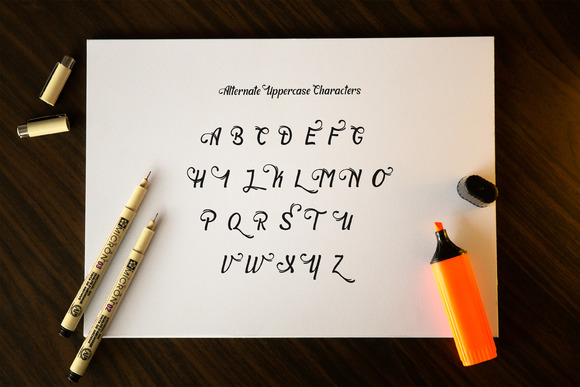 Alternate Uppercase Characters
A B C D E F G
H I J K L M N O
P Q R S T U
V W X Y Z
MICRON 03
MICRON 02